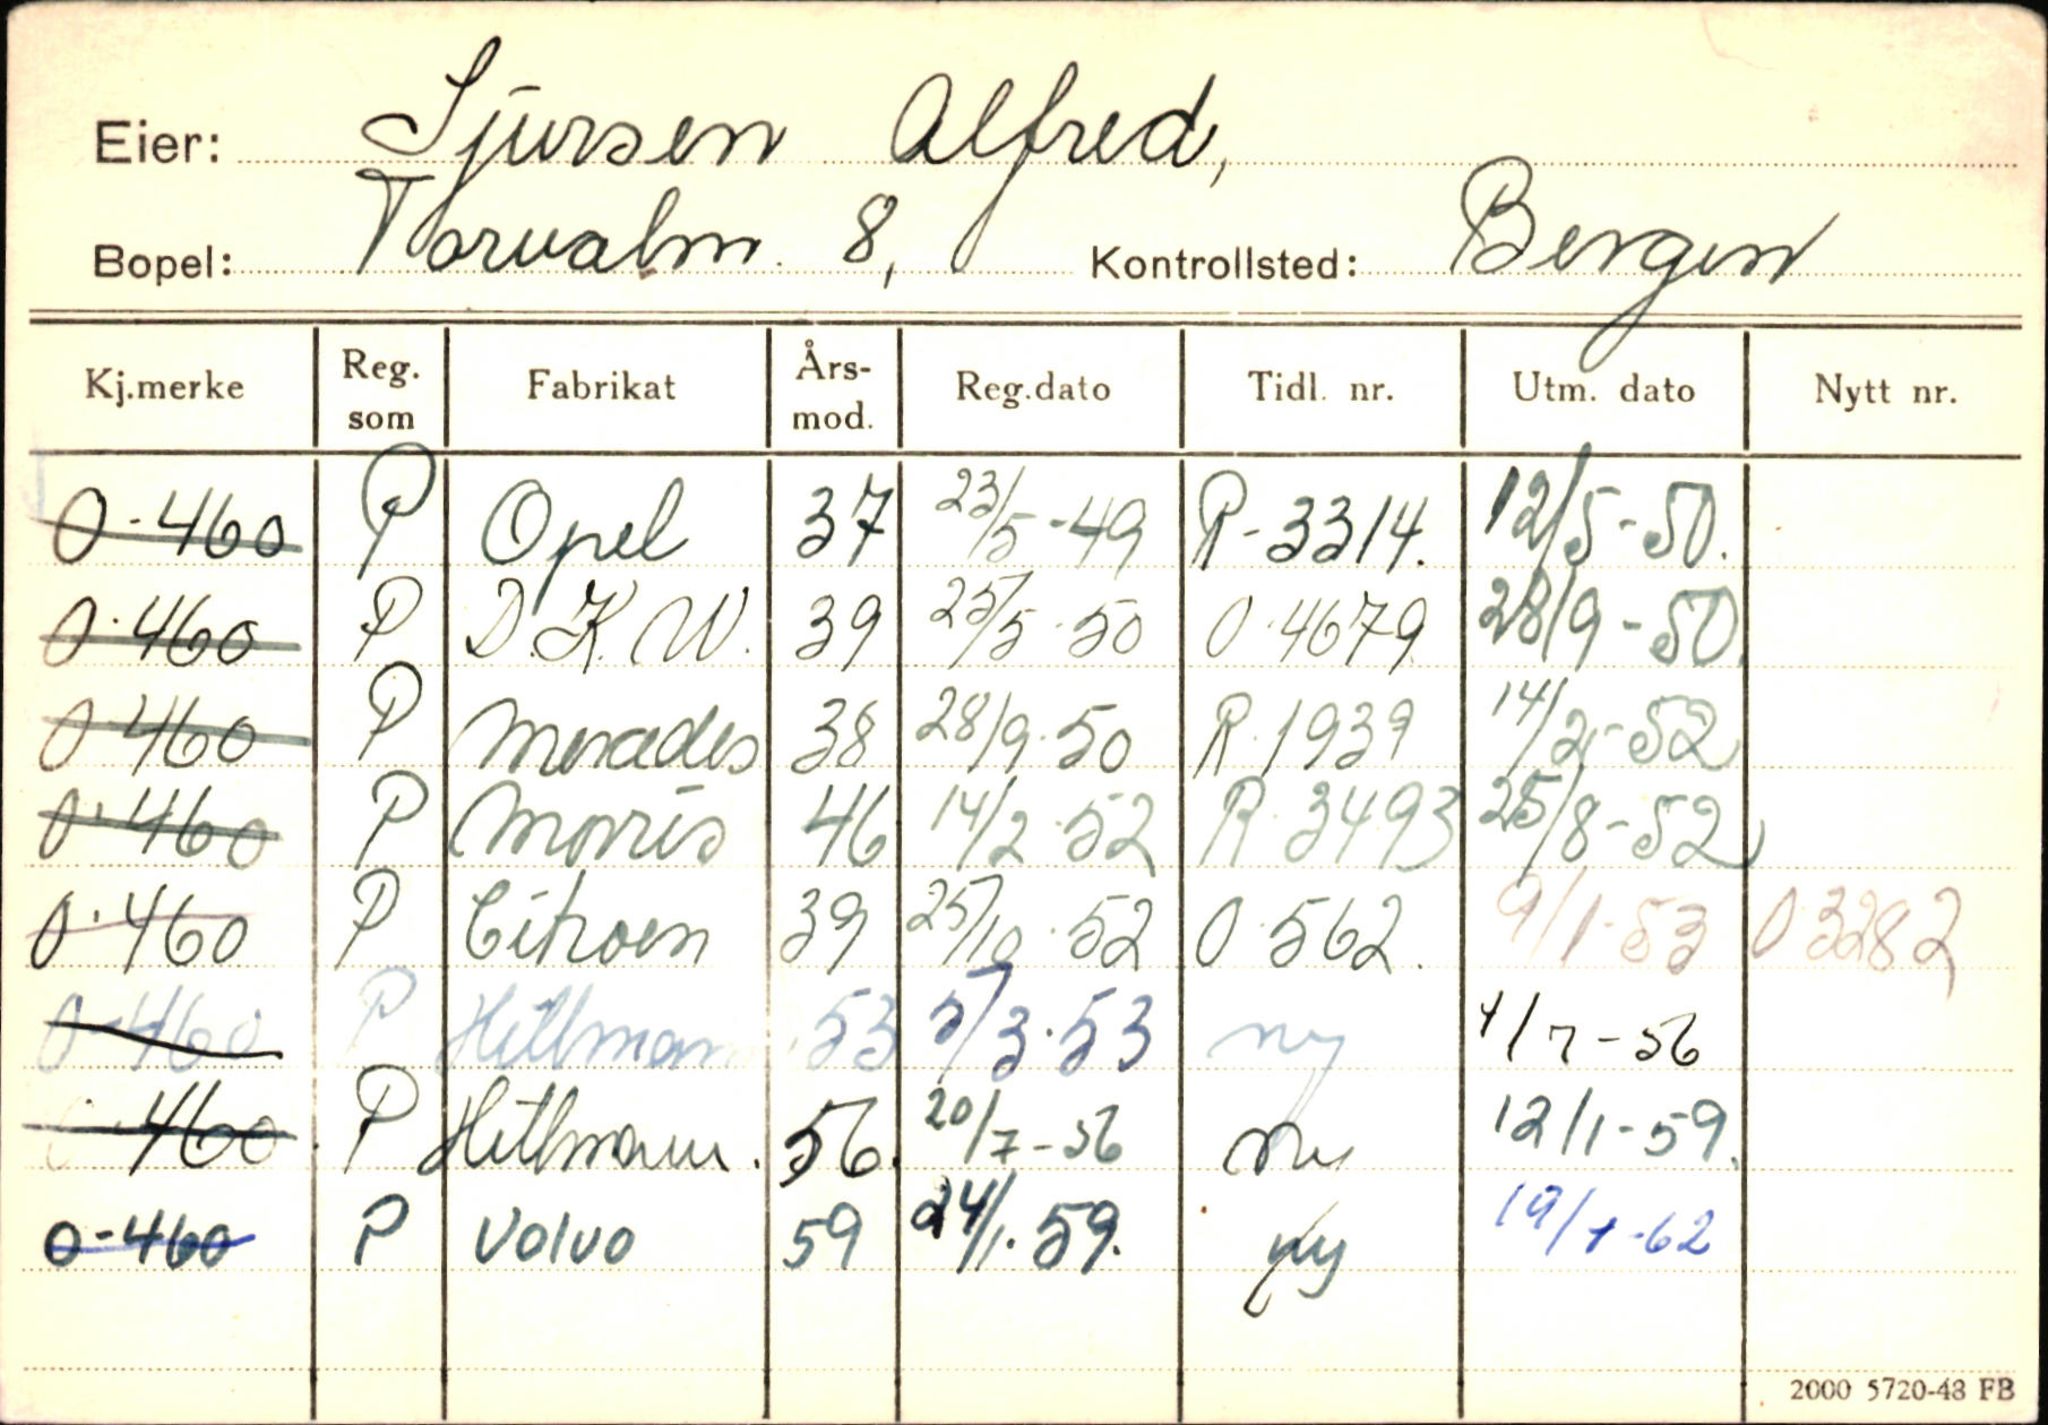 Eier: Sjursen Alfred,
Bopel: Torvalm. 8, Kontrollsted: Bergen
Kj.merke Reg. som Fabrikat Års- mod. Reg.dato Tidl. nr. Utm. dato Nytt nr.
O-460 P Opel 37 23/5-49 R-3314. 12/5-50.
O-460 P D.K.W. 39 25/5-50 O-4679 28/9-50.
O-460 P Mercedes 38 28/9-50 R-1939 14/2-52
O-460 P Morris 46 14/2-52 R-3493 25/8-52
O-460 P Citroen 39 25/10-52 O-562. 9/1-53 O-3282
O-460 P Hillman 53 5/3-53 ny 4/7-56
O-460 P Hillmann. 56. 20/7-56 ny 12/1-59.
O-460 P Volvo 59 24/1-59. ny 19/1-62
2000 5720-48 FB